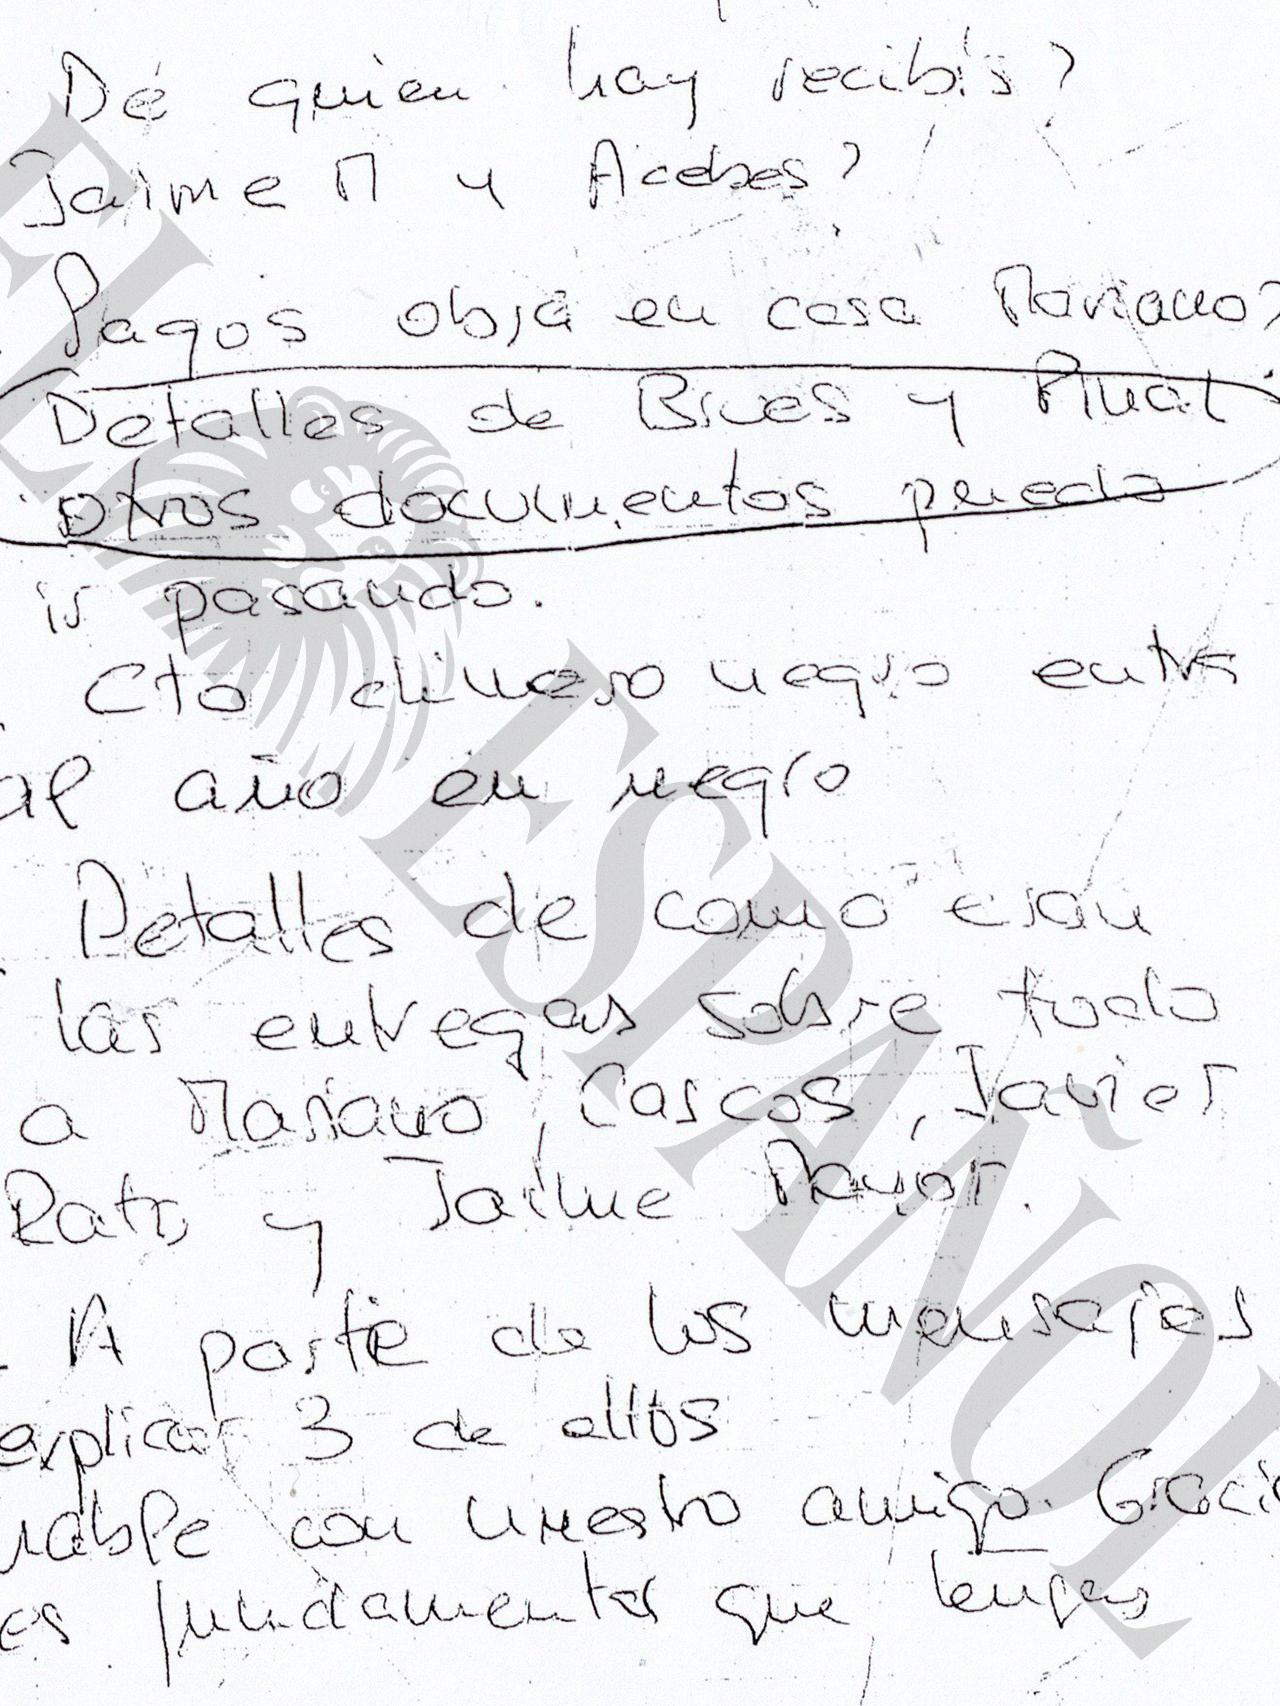 De quien hay recibís?
Jaime M y Acebes?
Pagos obra en casa Mariano?
Detalles de Brues y Plural
otros documentos puedo
ir pasando.
Cto dinero negro entra
al año en negro
Detalles de como eran
las entregas sobre todo
a Mariano, Cascos, Javier
Rato y Jaime Mayor.
A parte de los mensajes
explicar 3 de ellos
hable con nuestro amigo. Gracia
es fundamental que tengas
EL ESPAÑOL